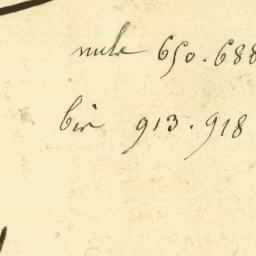 mule 650.688
bir 913.918